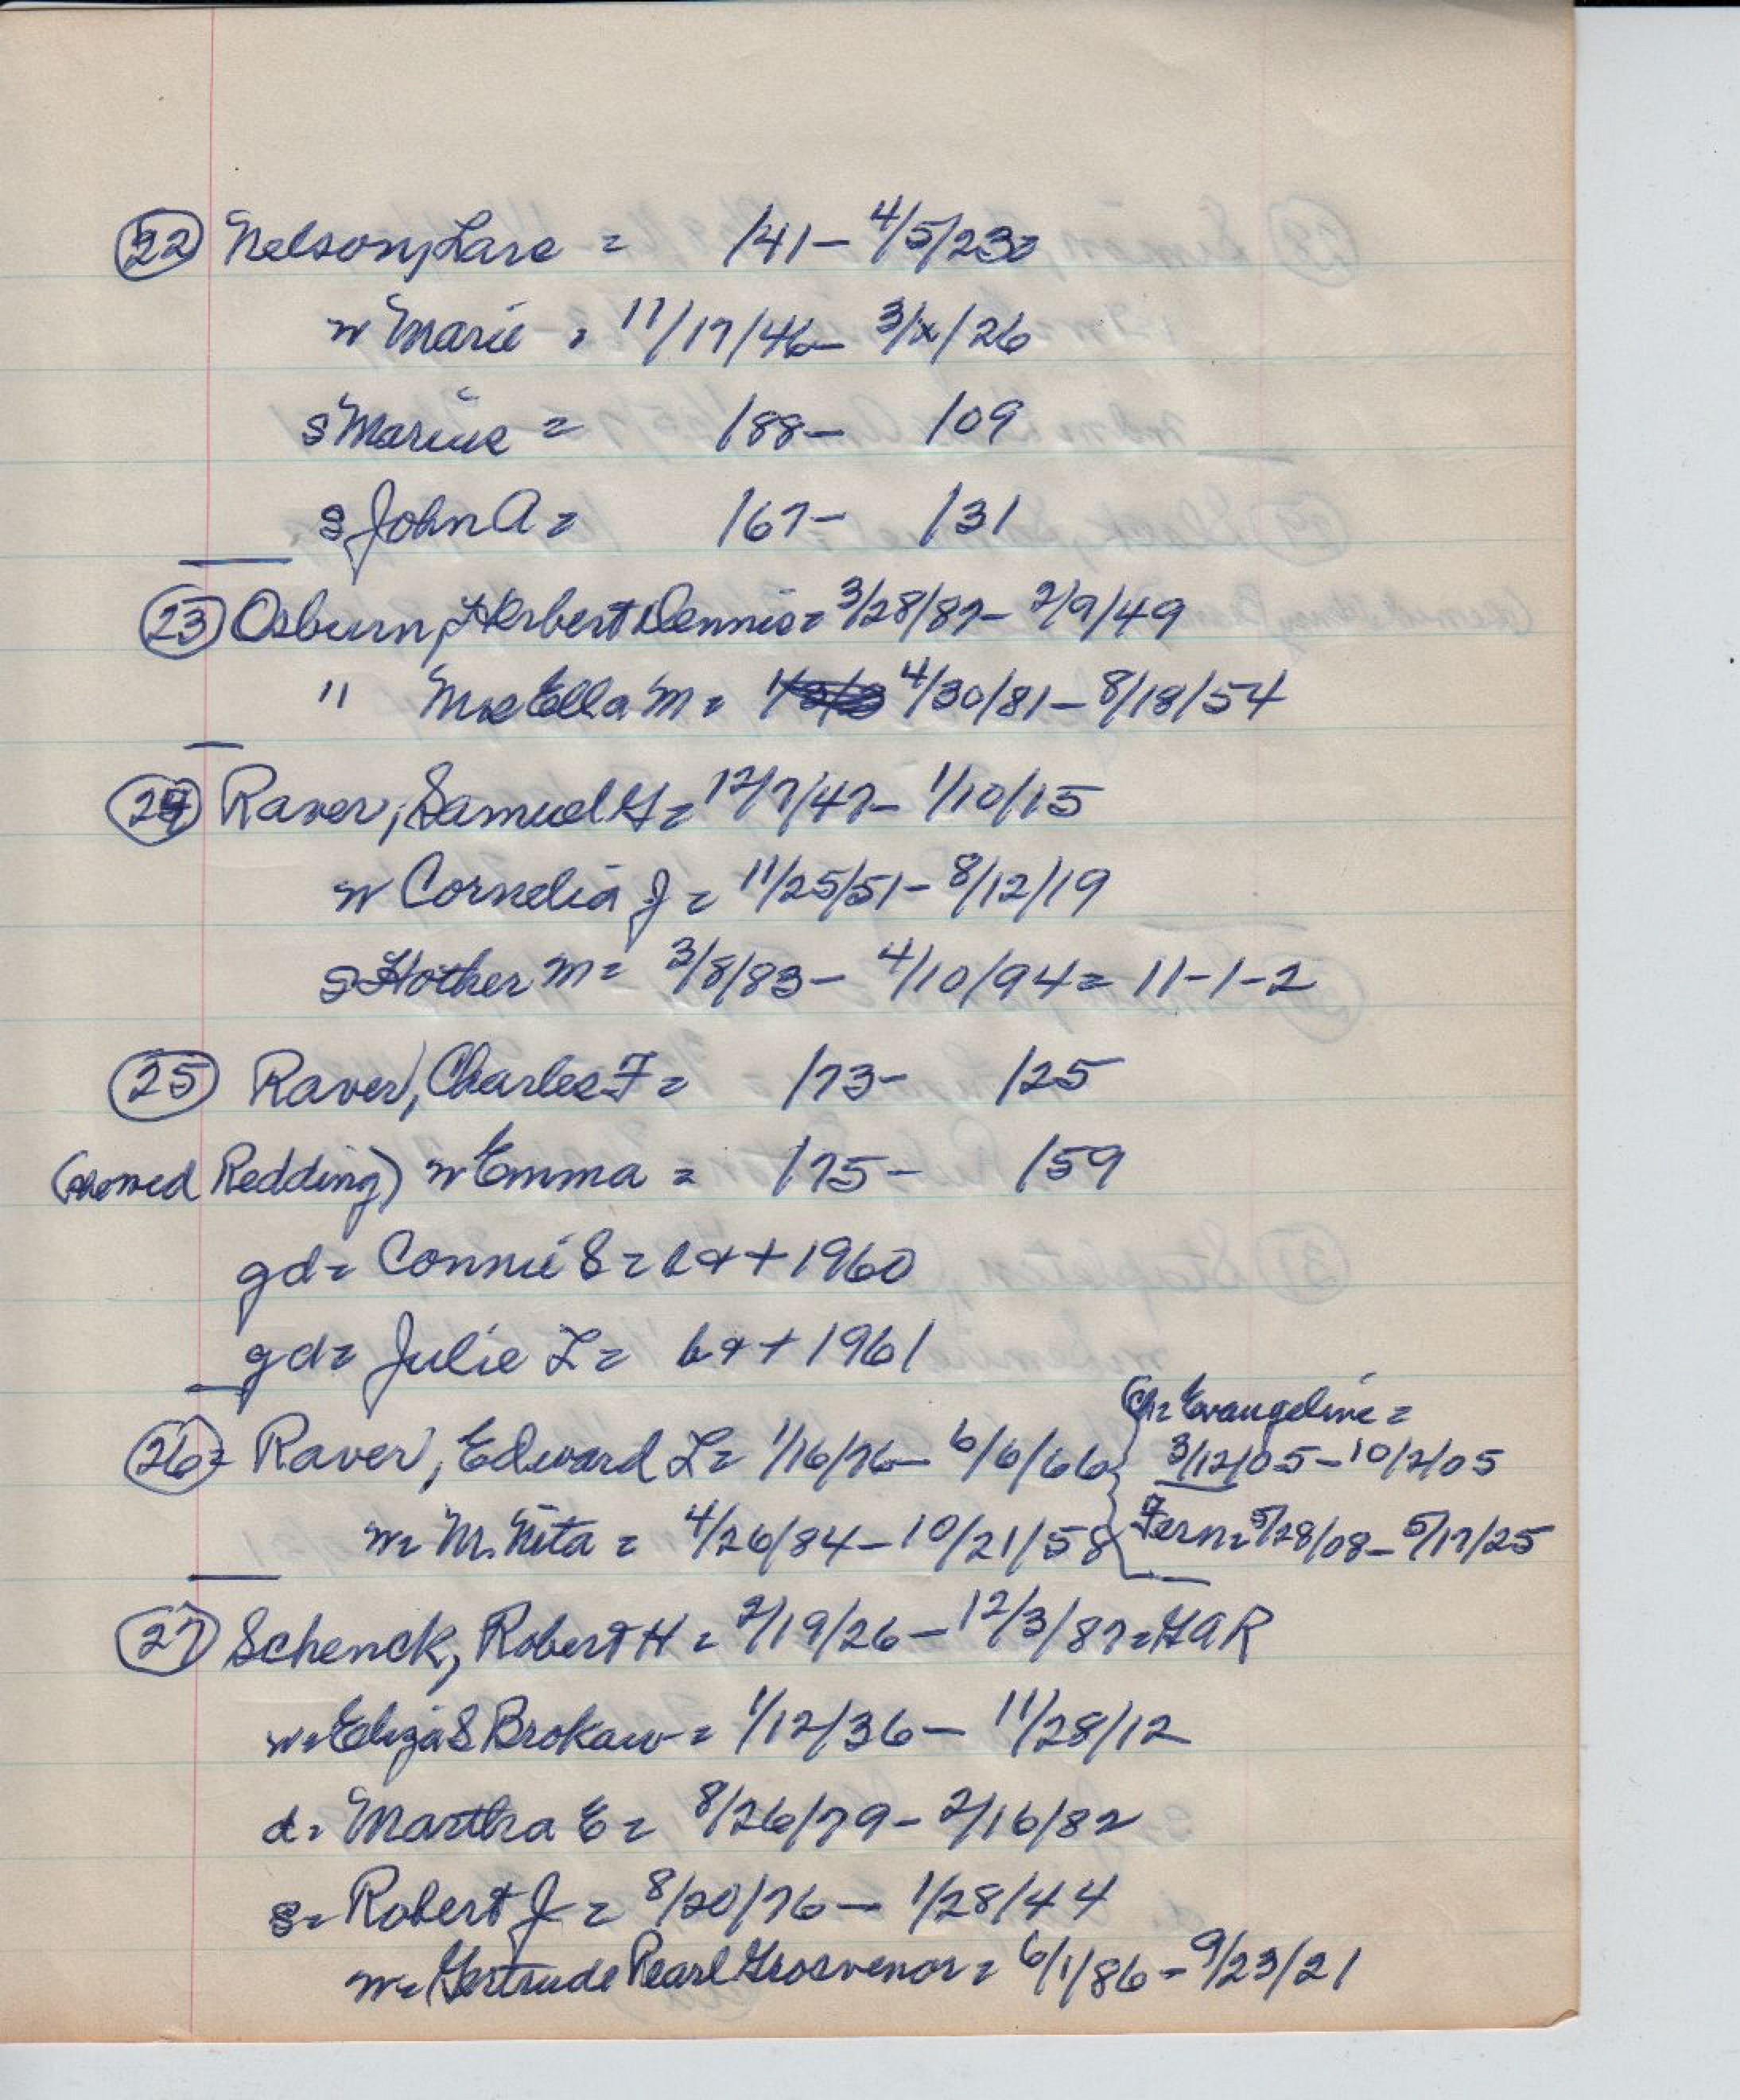 22 Nelson, Lars = /41 - 4/5/23=
w Marie = 11/17/46 - 3/x/26
s Marius = /88 - /09
s John A = /67 - /31
23 Osburn, Herbert Dennis = 3/28/87 - 2/9/49
" Mrs Ella M = 4/30/81 - 8/18/54
24 Raver, Samuel G = 12/7/47 - 1/10/15
w Cornelia J = 11/25/51 - 8/12/19
s Hother M = 3/8/83 - 4/10/94 = 11-1-2
25 Raver, Charles F = /73 - /25
(Redding) w Emma = /75 - /59
gd = Connie S = b & + 1960
gd = Julie L = b & + 1961
26 = Raver, Edward L = 1/16/76 - 6/6/66
w = M. Nita = 4/26/84 - 10/21/58
Ch = Evangeline =
3/12/05 - 10/2/05
Fern = 5/28/08 - 5/17/25
27 Schenck, Robert H = 2/19/26 - 12/3/87 = GAR
w = Eliza S Brokaw = 1/12/36 - 11/28/12
d = Martha E = 8/26/79 - 2/16/82
s = Robert J = 8/20/76 - 1/28/44
w = Gertrude Pearl Grosvenor = 6/1/86 - 9/23/21